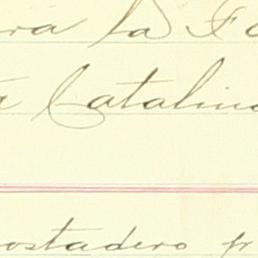 ra la F
a Catalina
ostadero fr